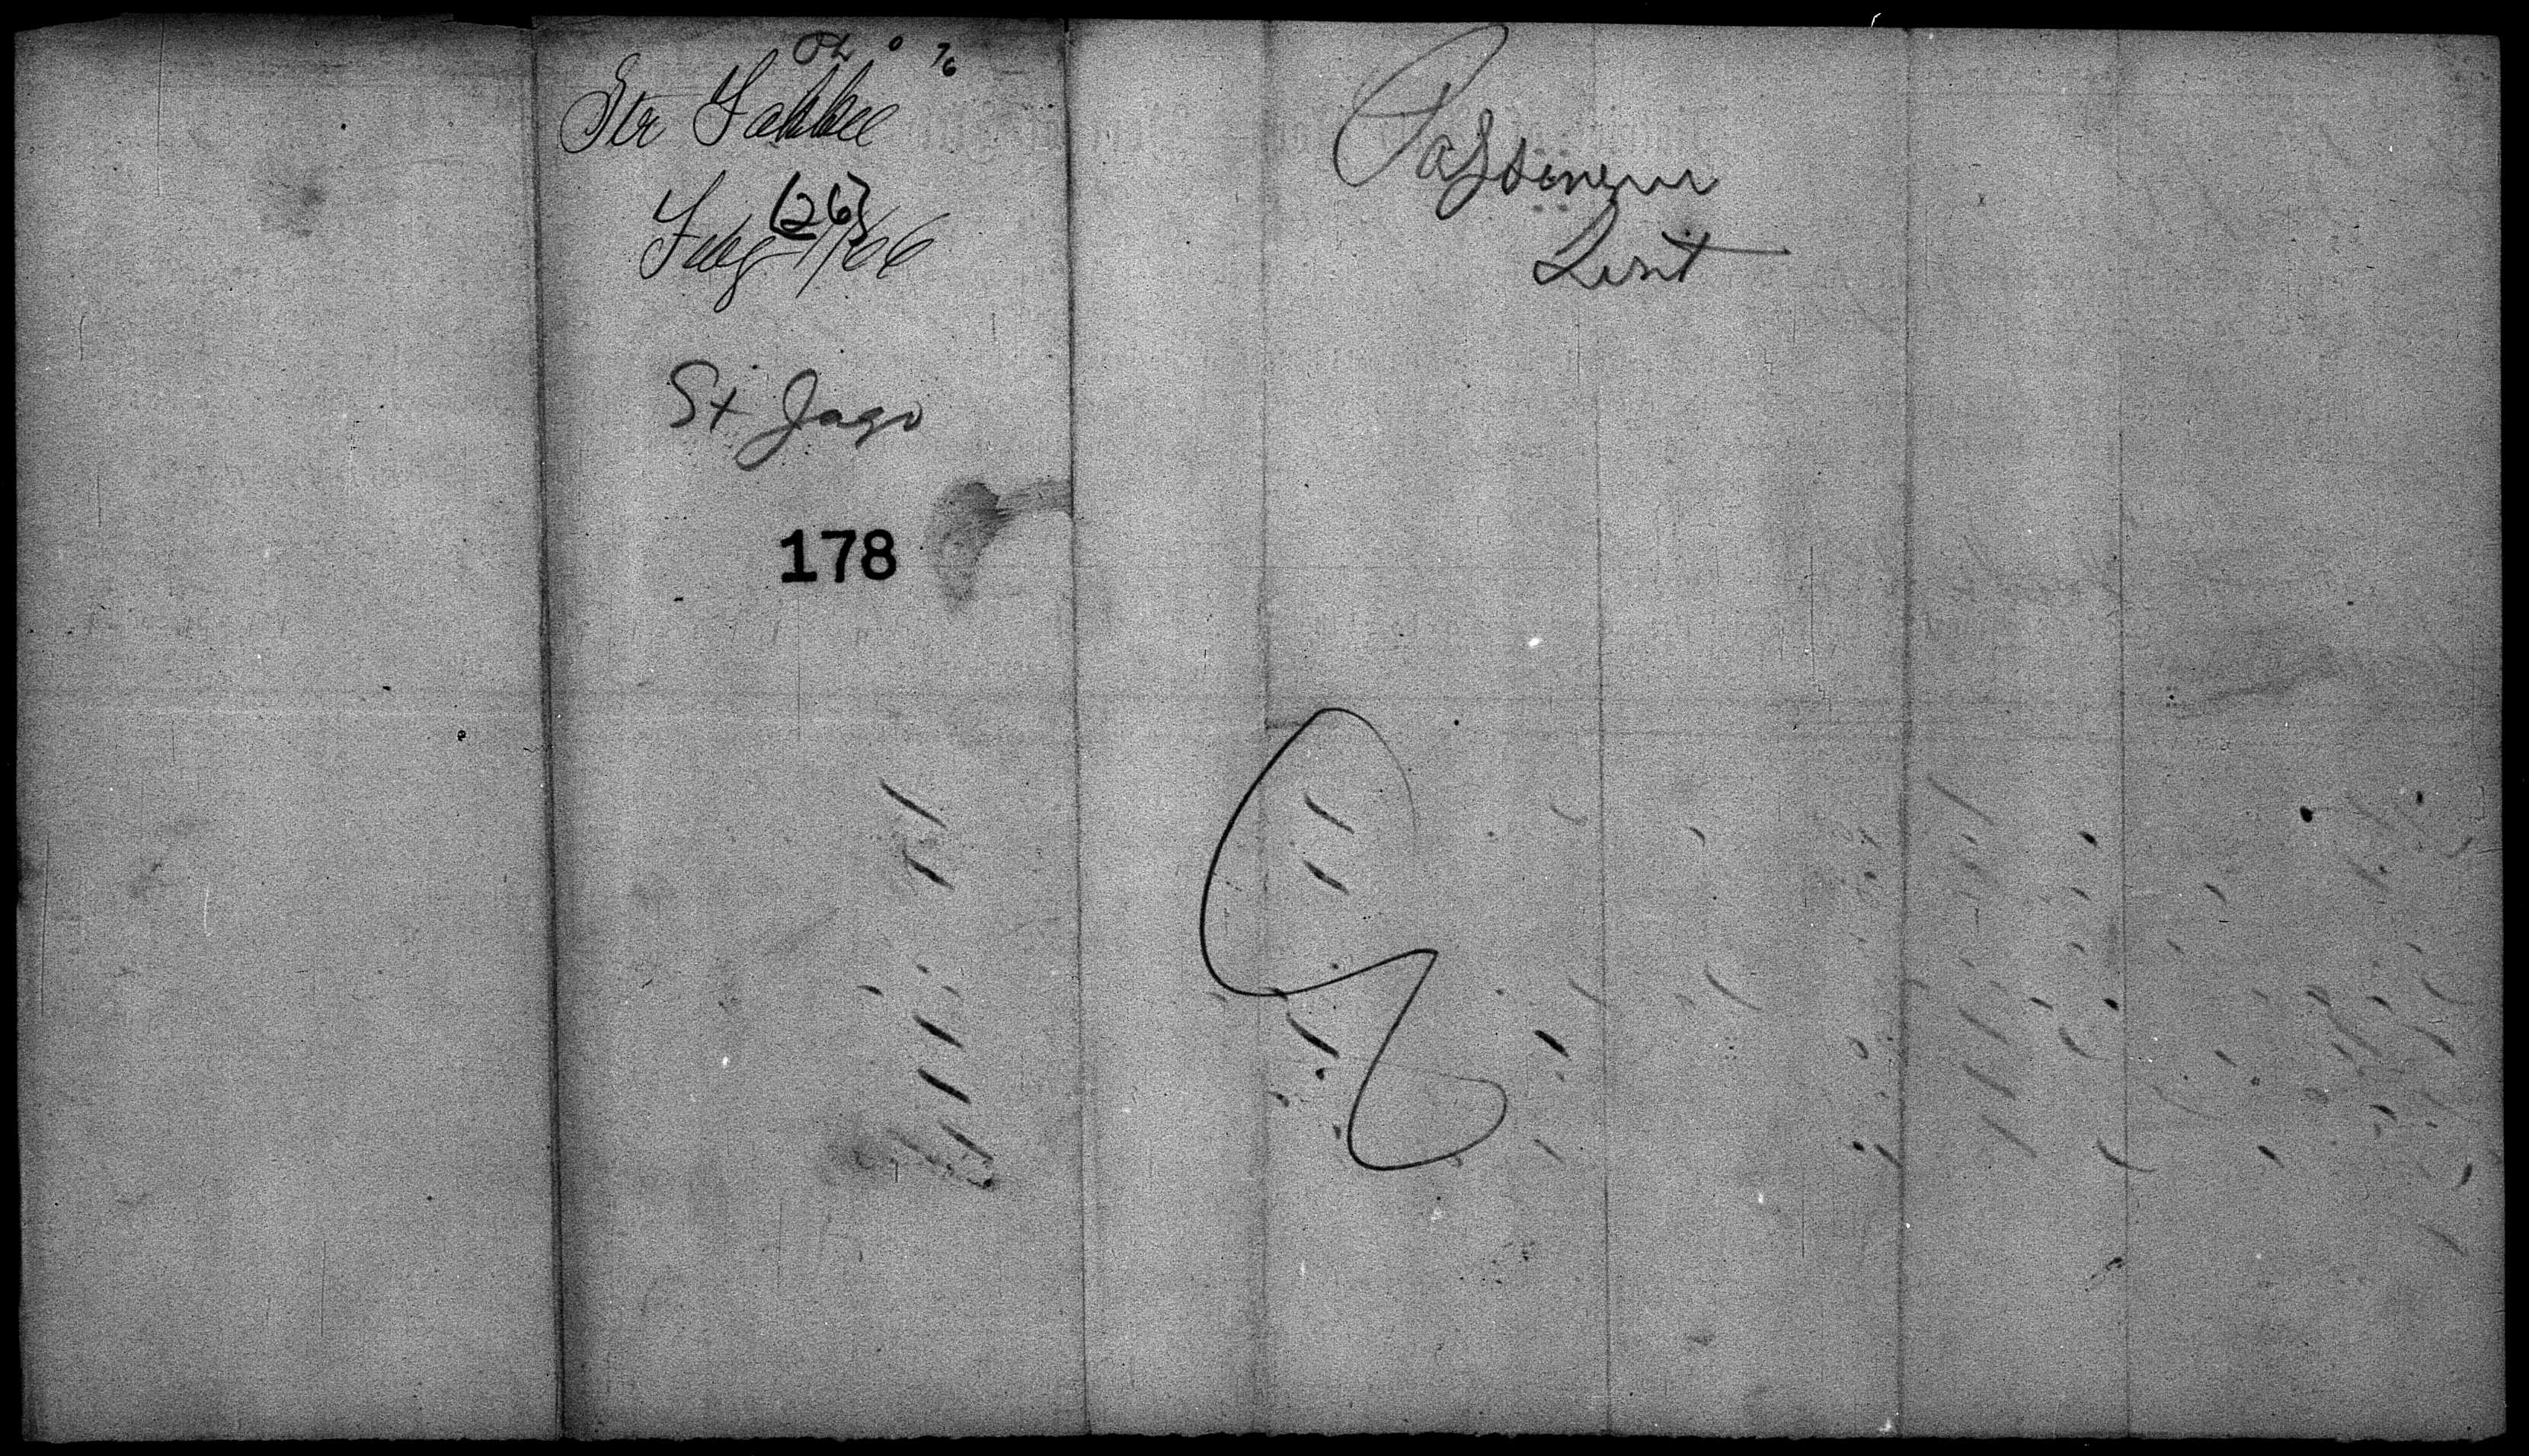 Str Yahkee
(26)
Aug 1/66
St Jago
178
Passenger
List